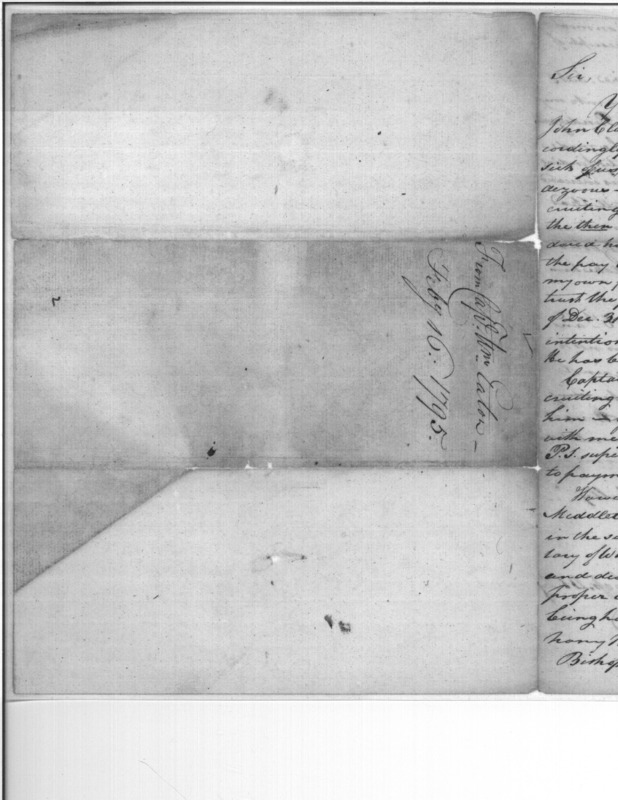 From Capt. Wm Eaton –
Feby 16. 1795.
2
Sir,
John Cle
cordingly
sick
cruiting
the then
dered h
the pay
my own
trust the
of Dec. 3
intention
He has b
Captai
cruiting
him
with me
P.S. supe
to paym
Middlet
in the se
tory of W
and de
proper
being h
Bishop